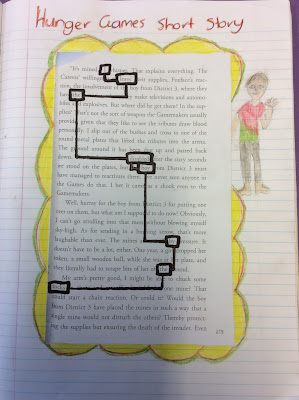 Hunger Games Short Story
"It's mined," explains everything. The
Careers' willing their supplies. Foxface's reac-
tion, the involvement of the boy from District 3, where they
have the make televisions and automo-
biles and explosives. But where did he get them? In the sup-
plies? That's not the sort of weapon the Gamemakers usually
provide, given that they like to see the tributes draw blood
personally. I slip out of the bushes and cross to one of the
round metal plates that lifted the tributes into the arena.
The ground around it has been dug up and patted back
down. after the sixty seconds
we stood on the plates, but from District 3 must
have managed to reactivate them. never seen anyone in
the Games do that. I bet it came as a shock even to the
Gamemakers.
Well, hurray for the boy from District 3 for putting one
over on them, but what am I supposed to do now? Obviously,
I can't go strolling into that mess without blowing myself
sky-high. As for sending in a burning arrow, that's more
laughable than ever. The mines are by pressure. It
doesn't have to be a lot, either. One year, a girl dropped her
token, a small wooden ball, while she was at her plate, and
they literally had to scrape bits of her off the ground.
My arm's pretty good, I might be able to chuck some
in there and set off one mine? That
could start a chain reaction. Or could it? Would the boy
from District 3 have placed the mines in such a way that a
single mine would not disturb the others? Thereby protect-
ing the supplies but ensuring the death of the invader. Even